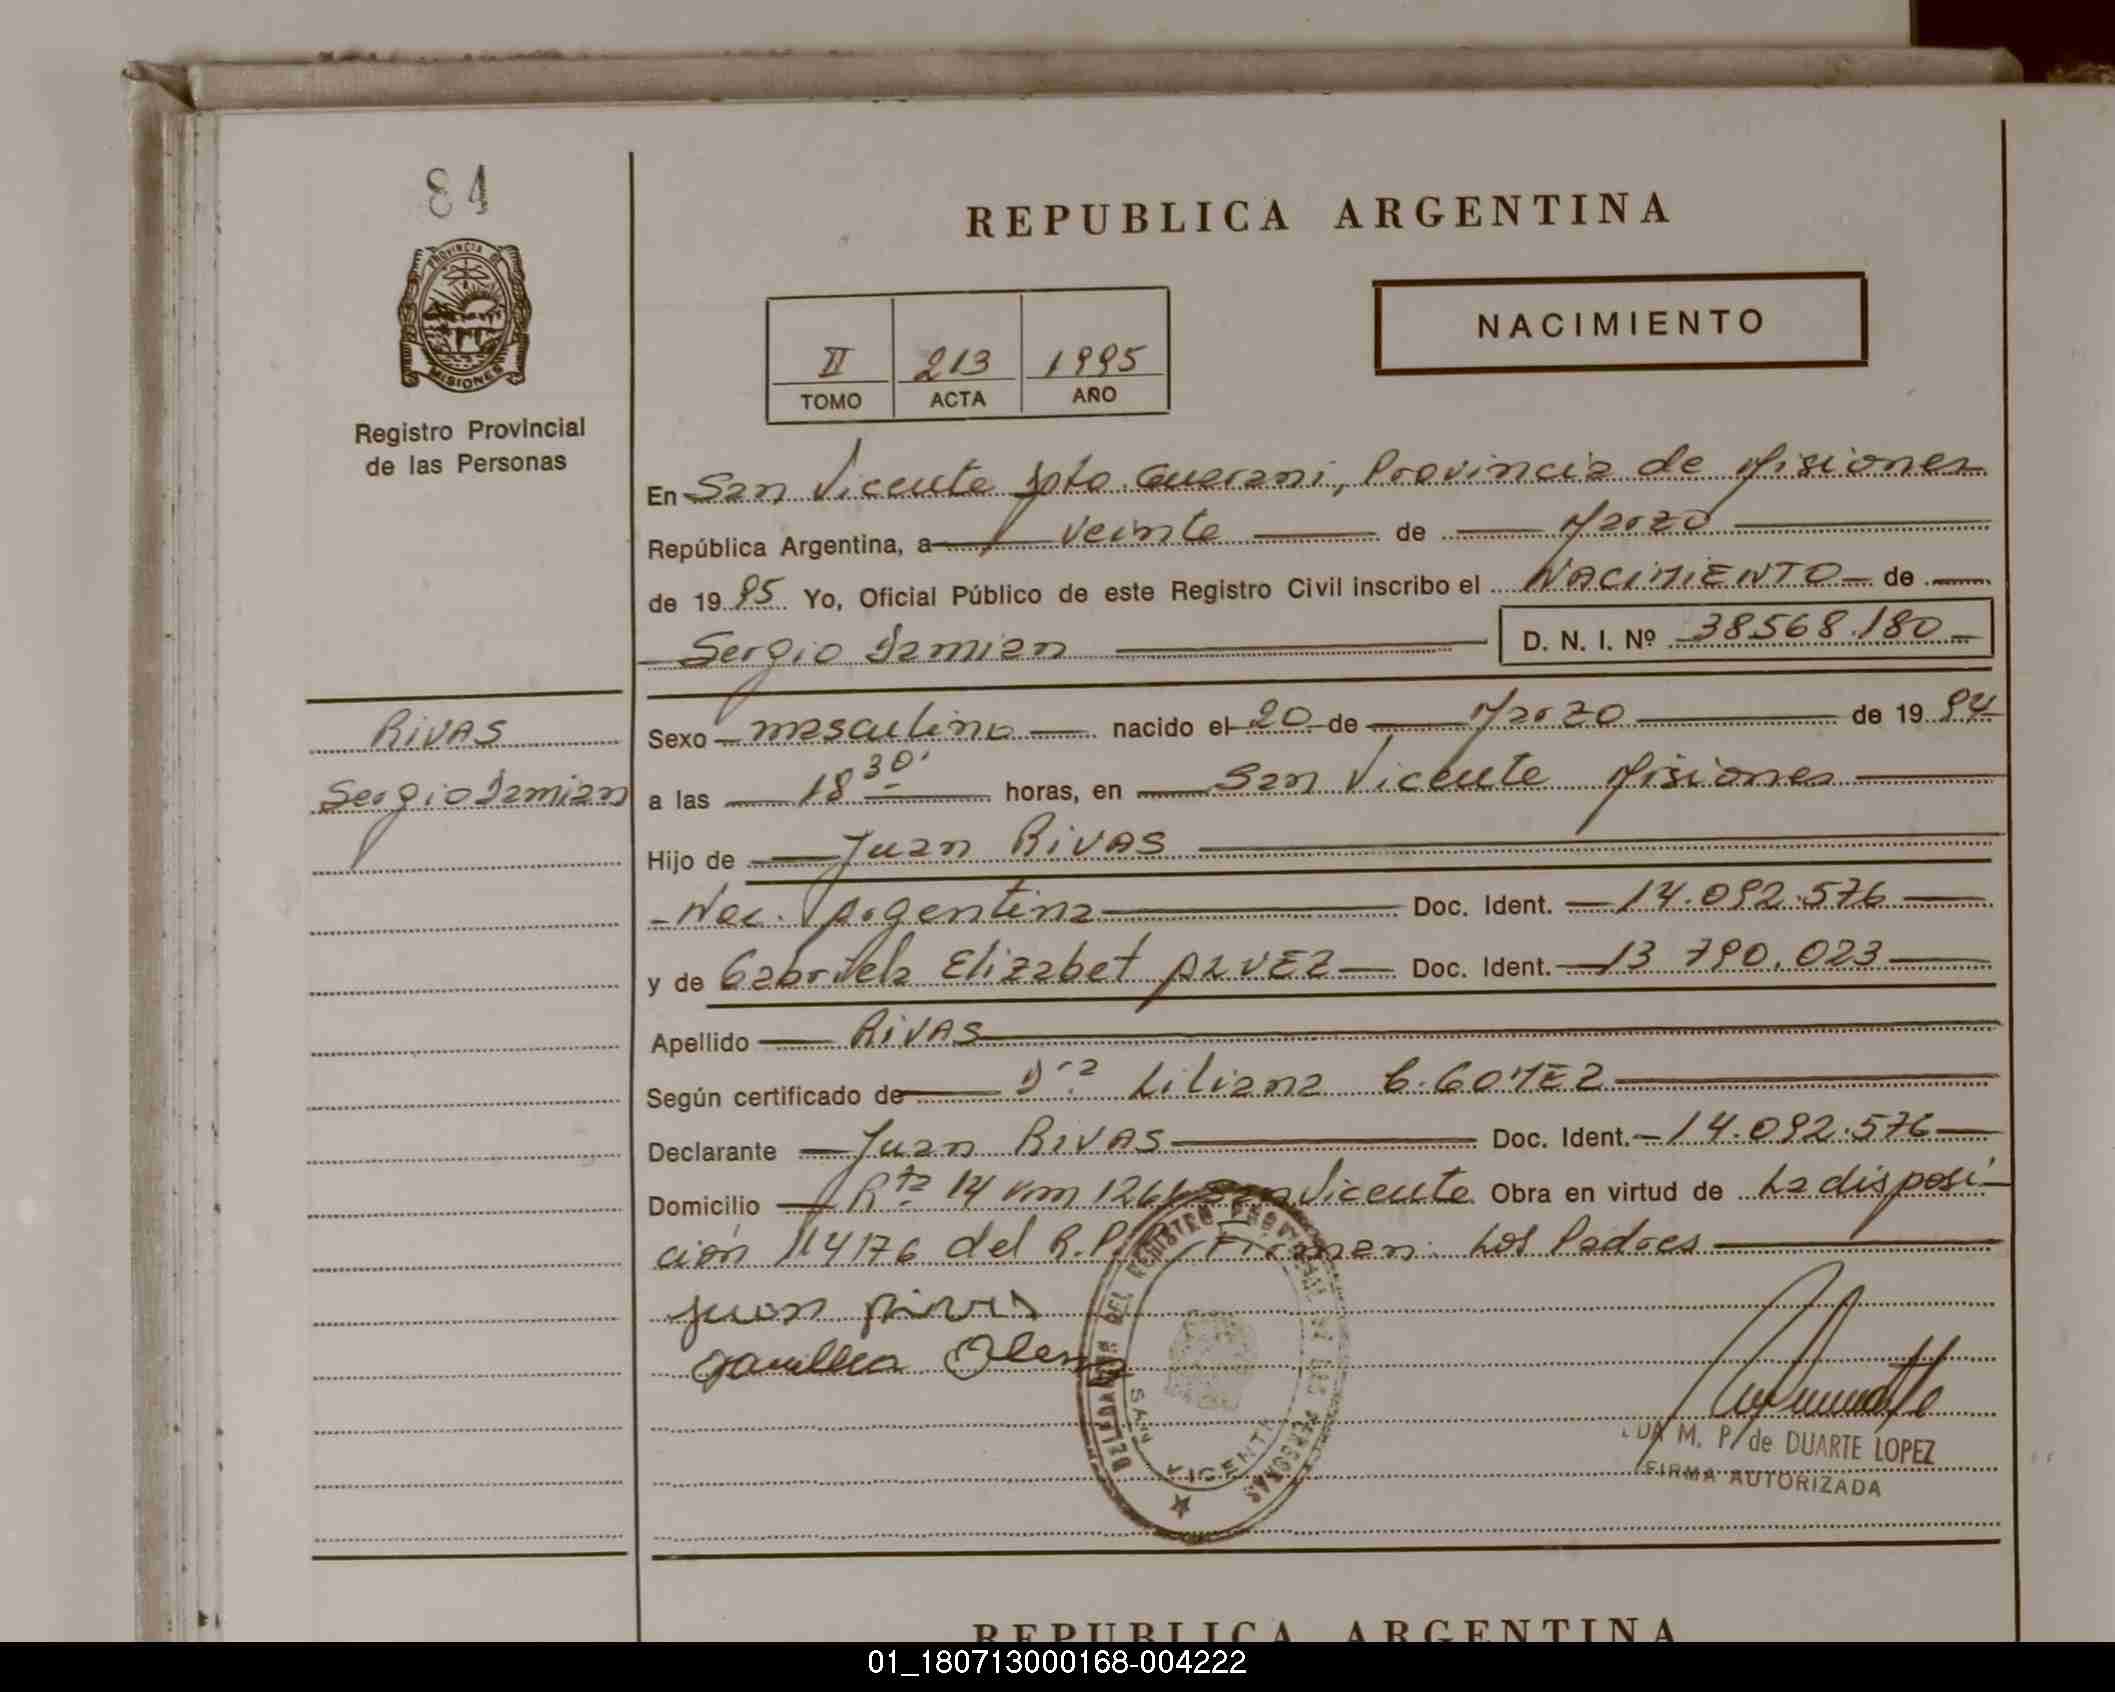 84
PROVINCIA DE
MISIONES
Registro Provincial
de las Personas
REPUBLICA ARGENTINA
II 213 1995
TOMO ACTA AÑO
NACIMIENTO
En San Vicente Dpto. Guarani, Provincia de Misiones
República Argentina, a veinte de Marzo
de 1995 Yo, Oficial Público de este Registro Civil inscribo el NACIMIENTO de
Sergio Damian D. N. I. Nº 38568.180
RIVAS
Sergio Damian
Sexo masculino nacido el 20 de Marzo de 1994
a las 18 30' horas, en San Vicente Misiones
Hijo de Juan RIVAS
Nac. Argentina Doc. Ident. 14.092.576
y de Gabriela Elizabet ALVEZ Doc. Ident. 13 790.023
Apellido RIVAS
Según certificado de Dra Liliana G. GOMEZ
Declarante Juan RIVAS Doc. Ident. 14.092.576
Domicilio Rta 14 Km San Vicente Obra en virtud de La disposi-
ción 114176 del R.P. Firman: Los Padres
Juan Rivas
DELEGACION DEL REGISTRO PROVINCIAL DE LAS PERSONAS
SAN VICENTE
M. P. de DUARTE LOPEZ
FIRMA AUTORIZADA
REPUBLICA ARGENTINA
01_180713000168-004222